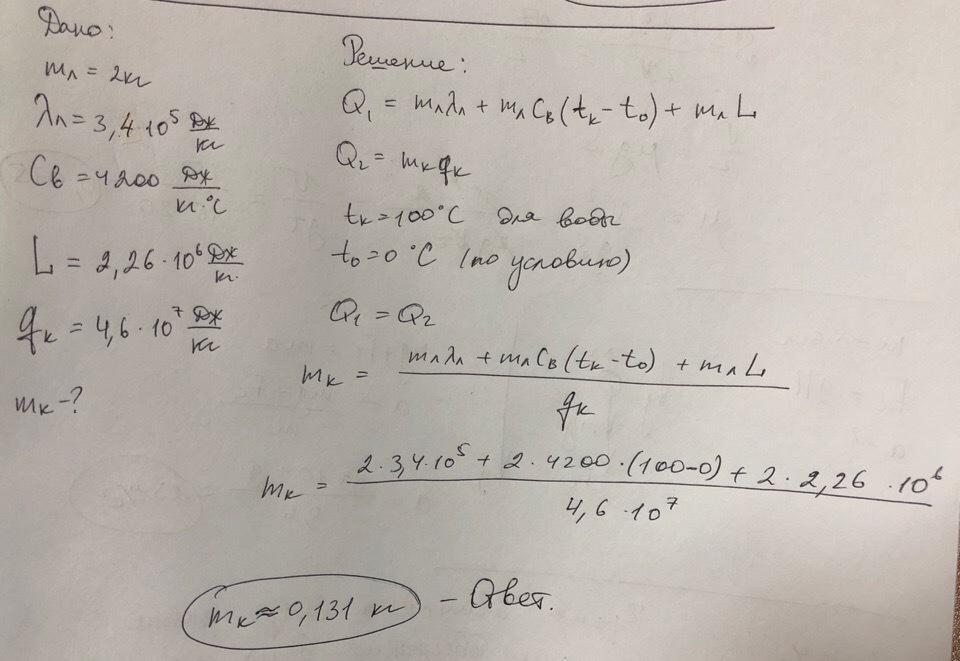 Дано:
mл = 2кг
λл = 3,4·10⁵ Дж/кг
Cв = 4200 Дж/кг·°C
L = 2,26·10⁶ Дж/кг.
qк = 4,6·10⁷ Дж/кг
mк -?
Решение:
Q₁ = mлλл + mлCв(tк-t₀) + mлL
Q₂ = mкqк
tк = 100°C для воды
t₀ = 0°C (по условию)
Q₁ = Q₂
mк = (mлλл + mлCв(tк-t₀) + mлL) / qк
mк = (2·3,4·10⁵ + 2·4200·(100-0) + 2·2,26·10⁶) / 4,6·10⁷
mк ≈ 0,131 кг - Ответ.